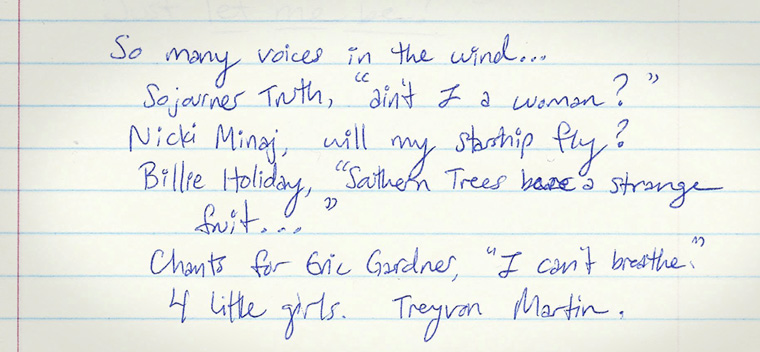 So many voices in the wind...
Sojourner Truth, "ain't I a woman?"
Nicki Minaj, will my starship fly?
Billie Holiday, "Southern Trees bare a strange
fruit..."
Chants for Eric Gardner, "I can't breathe."
4 little girls. Treyvon Martin.